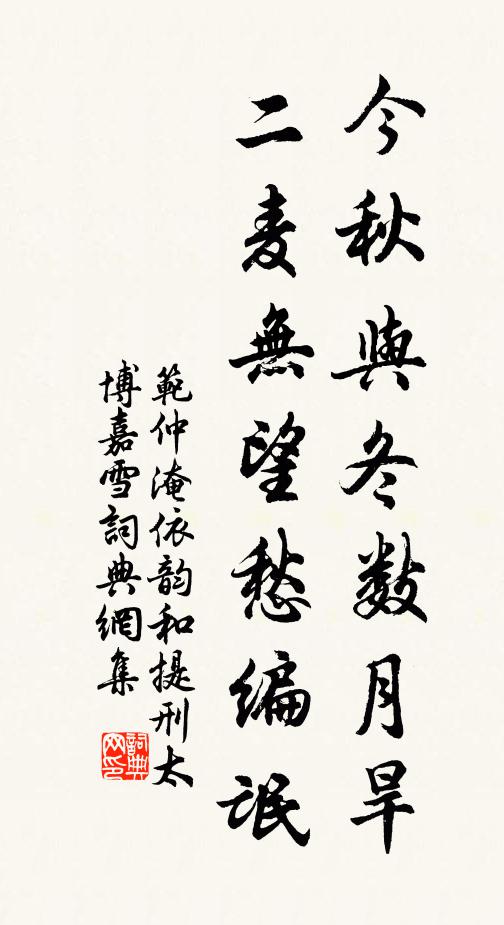 今秋與冬數月旱
二麦無望愁編氓
範仲淹依韵和提刑太
博嘉雪詞典網集
詞典
网印